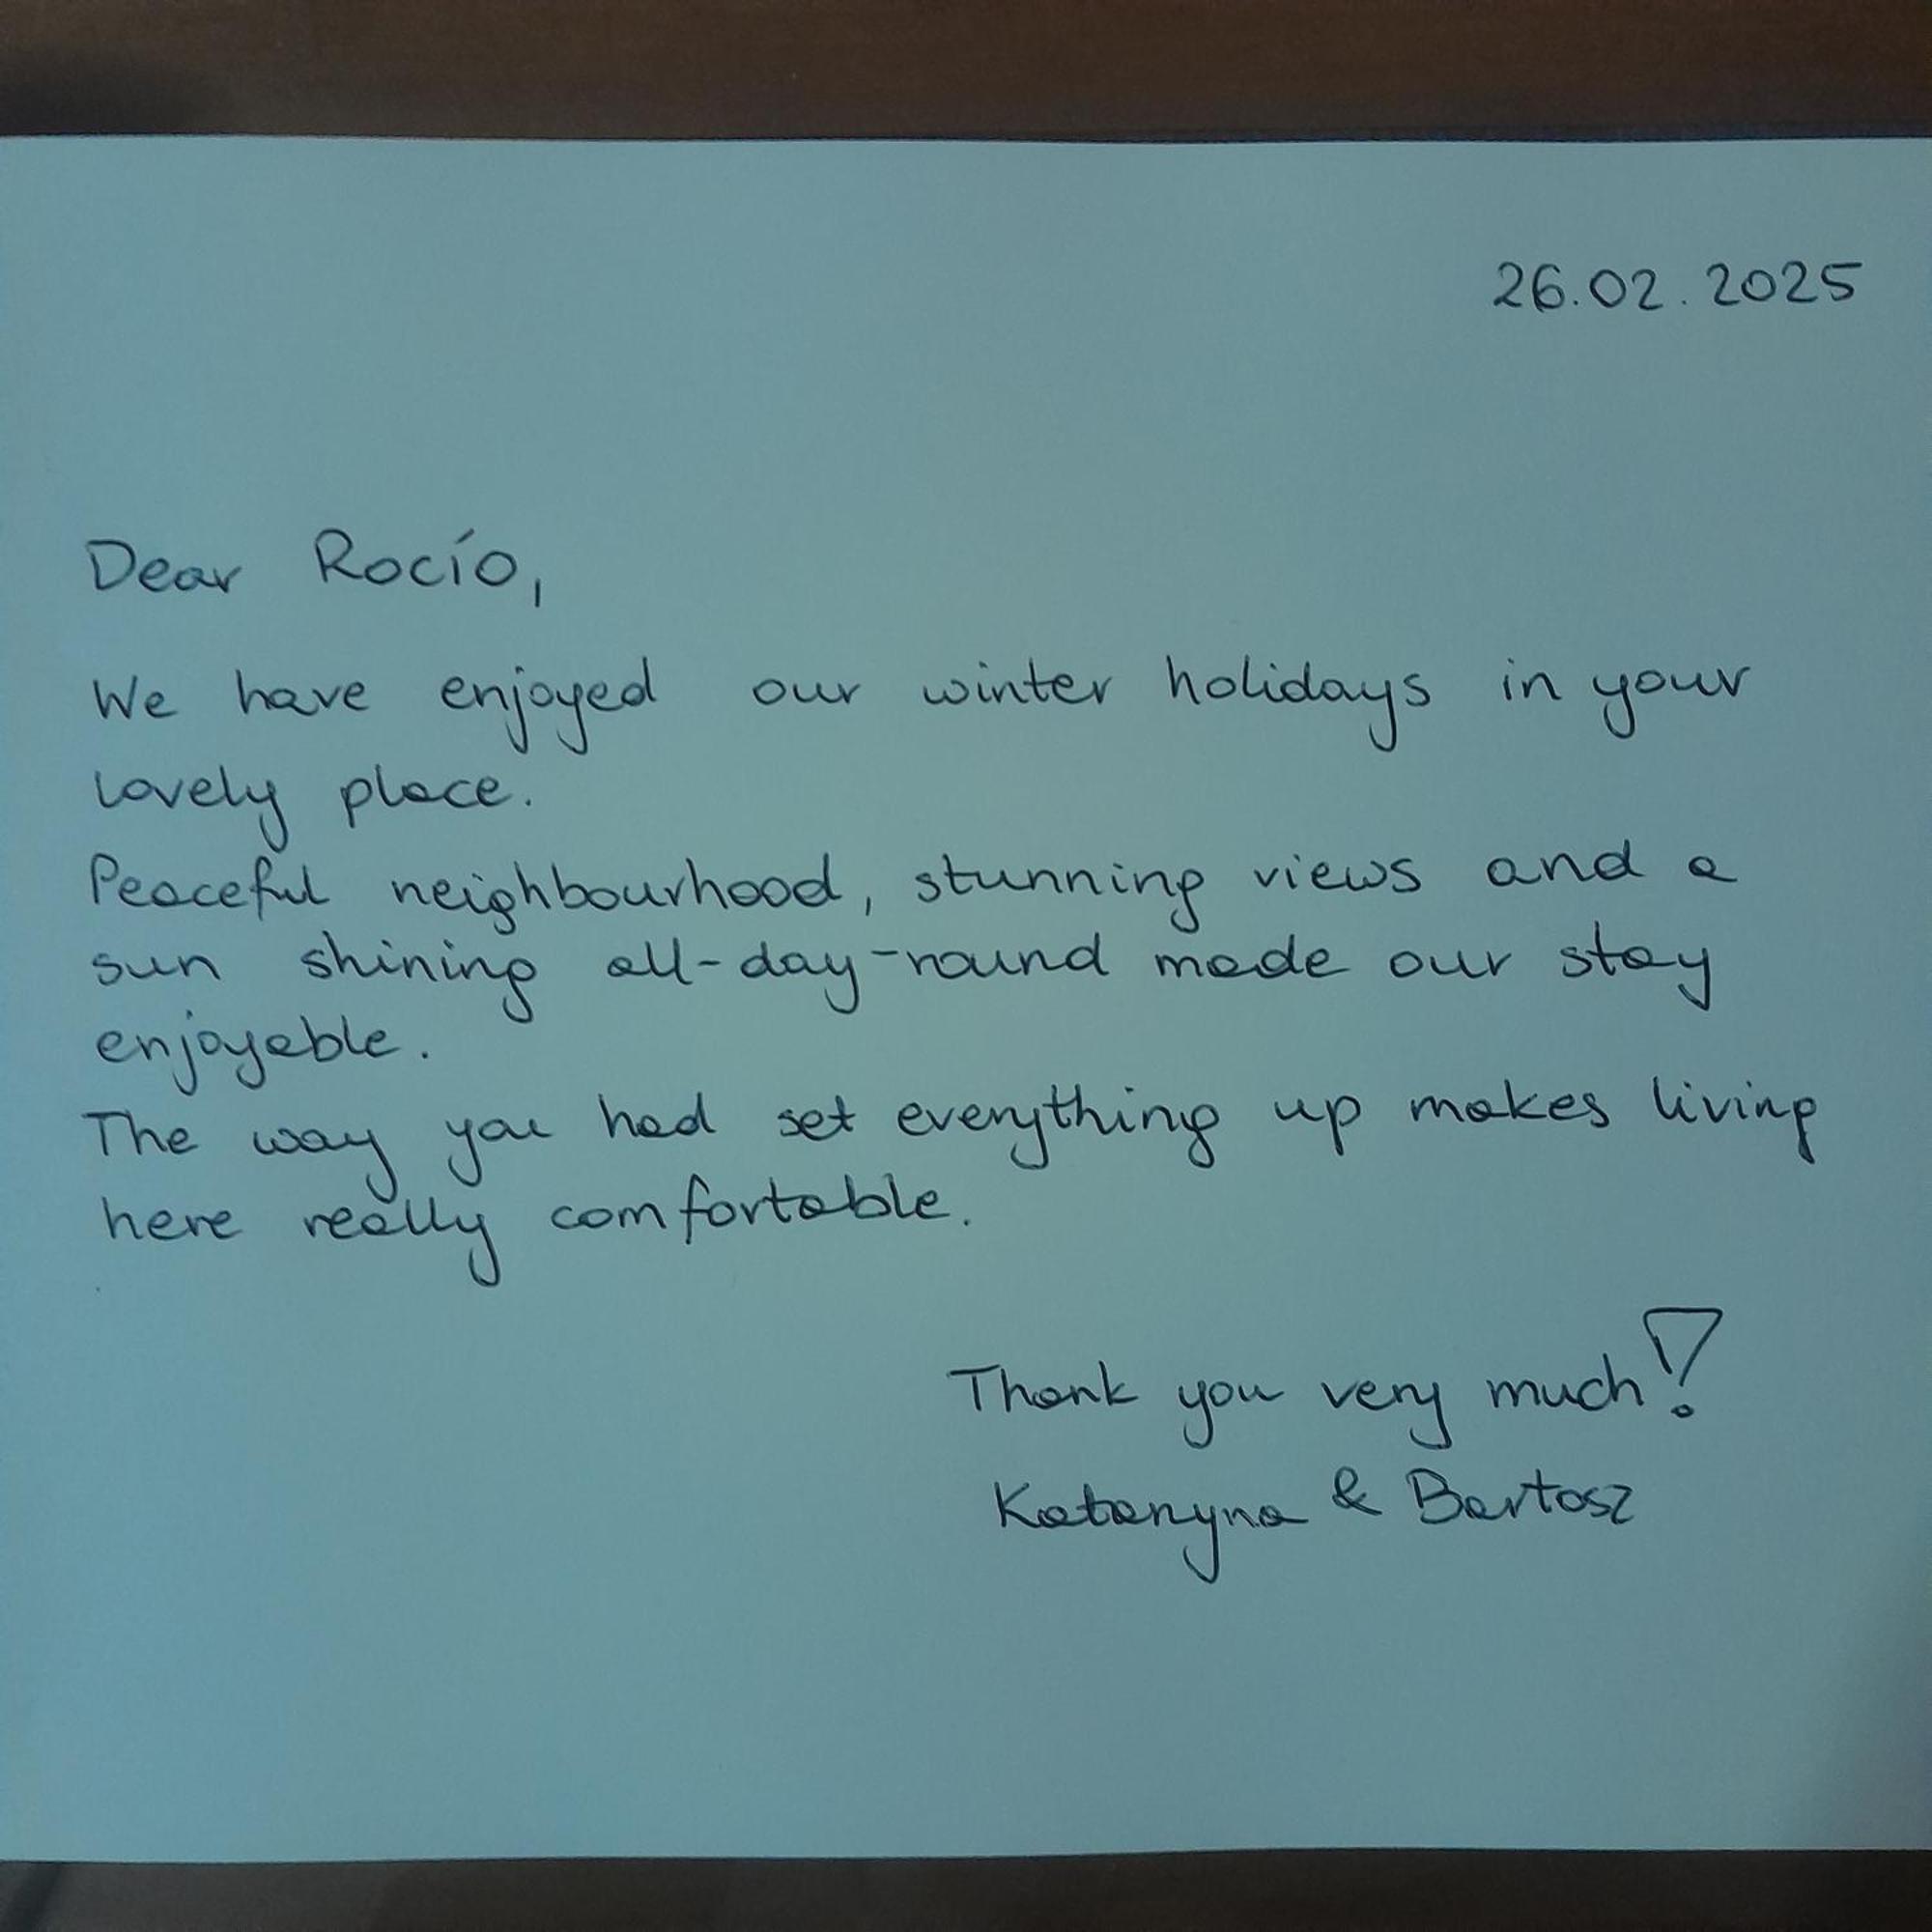 26.02.2025
Dear Rocío,
We have enjoyed our winter holidays in your
lovely place.
Peaceful neighbourhood, stunning views and a
sun shining all-day-round made our stay
enjoyable.
The way you had set everything up makes living
here really comfortable.
Thank you very much!
Katarzyna & Bartosz